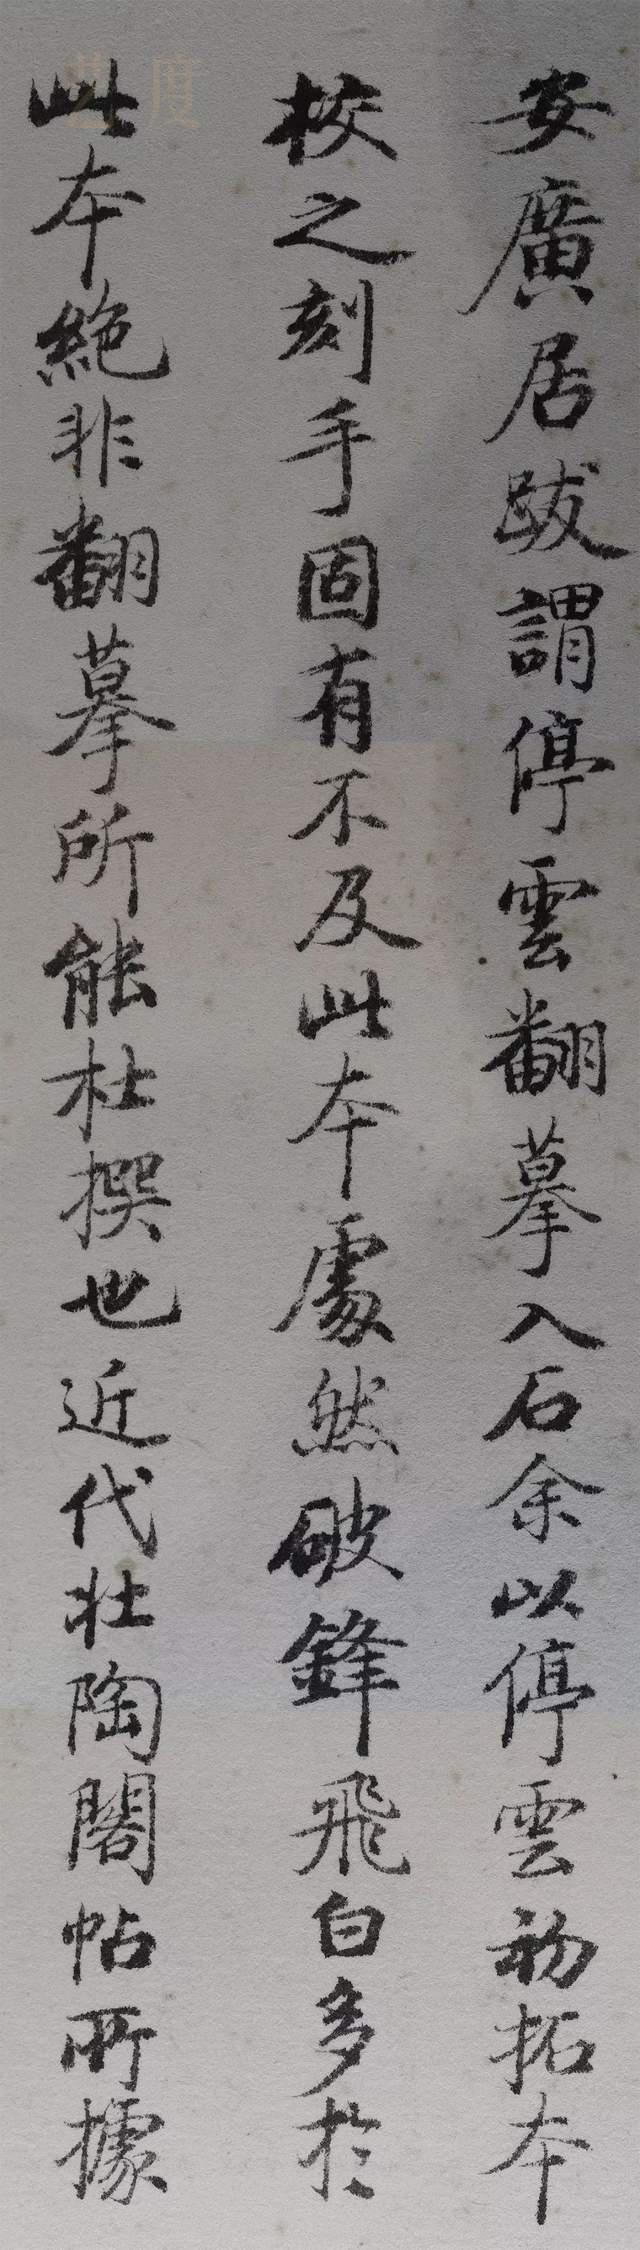 安廣居跋謂停雲翻摹入石余以停雲初拓本
校之刻手固有不及此本處然破鋒飛白多於
此本絶非翻摹所能杜撰也近代壯陶閣帖所據
藝度